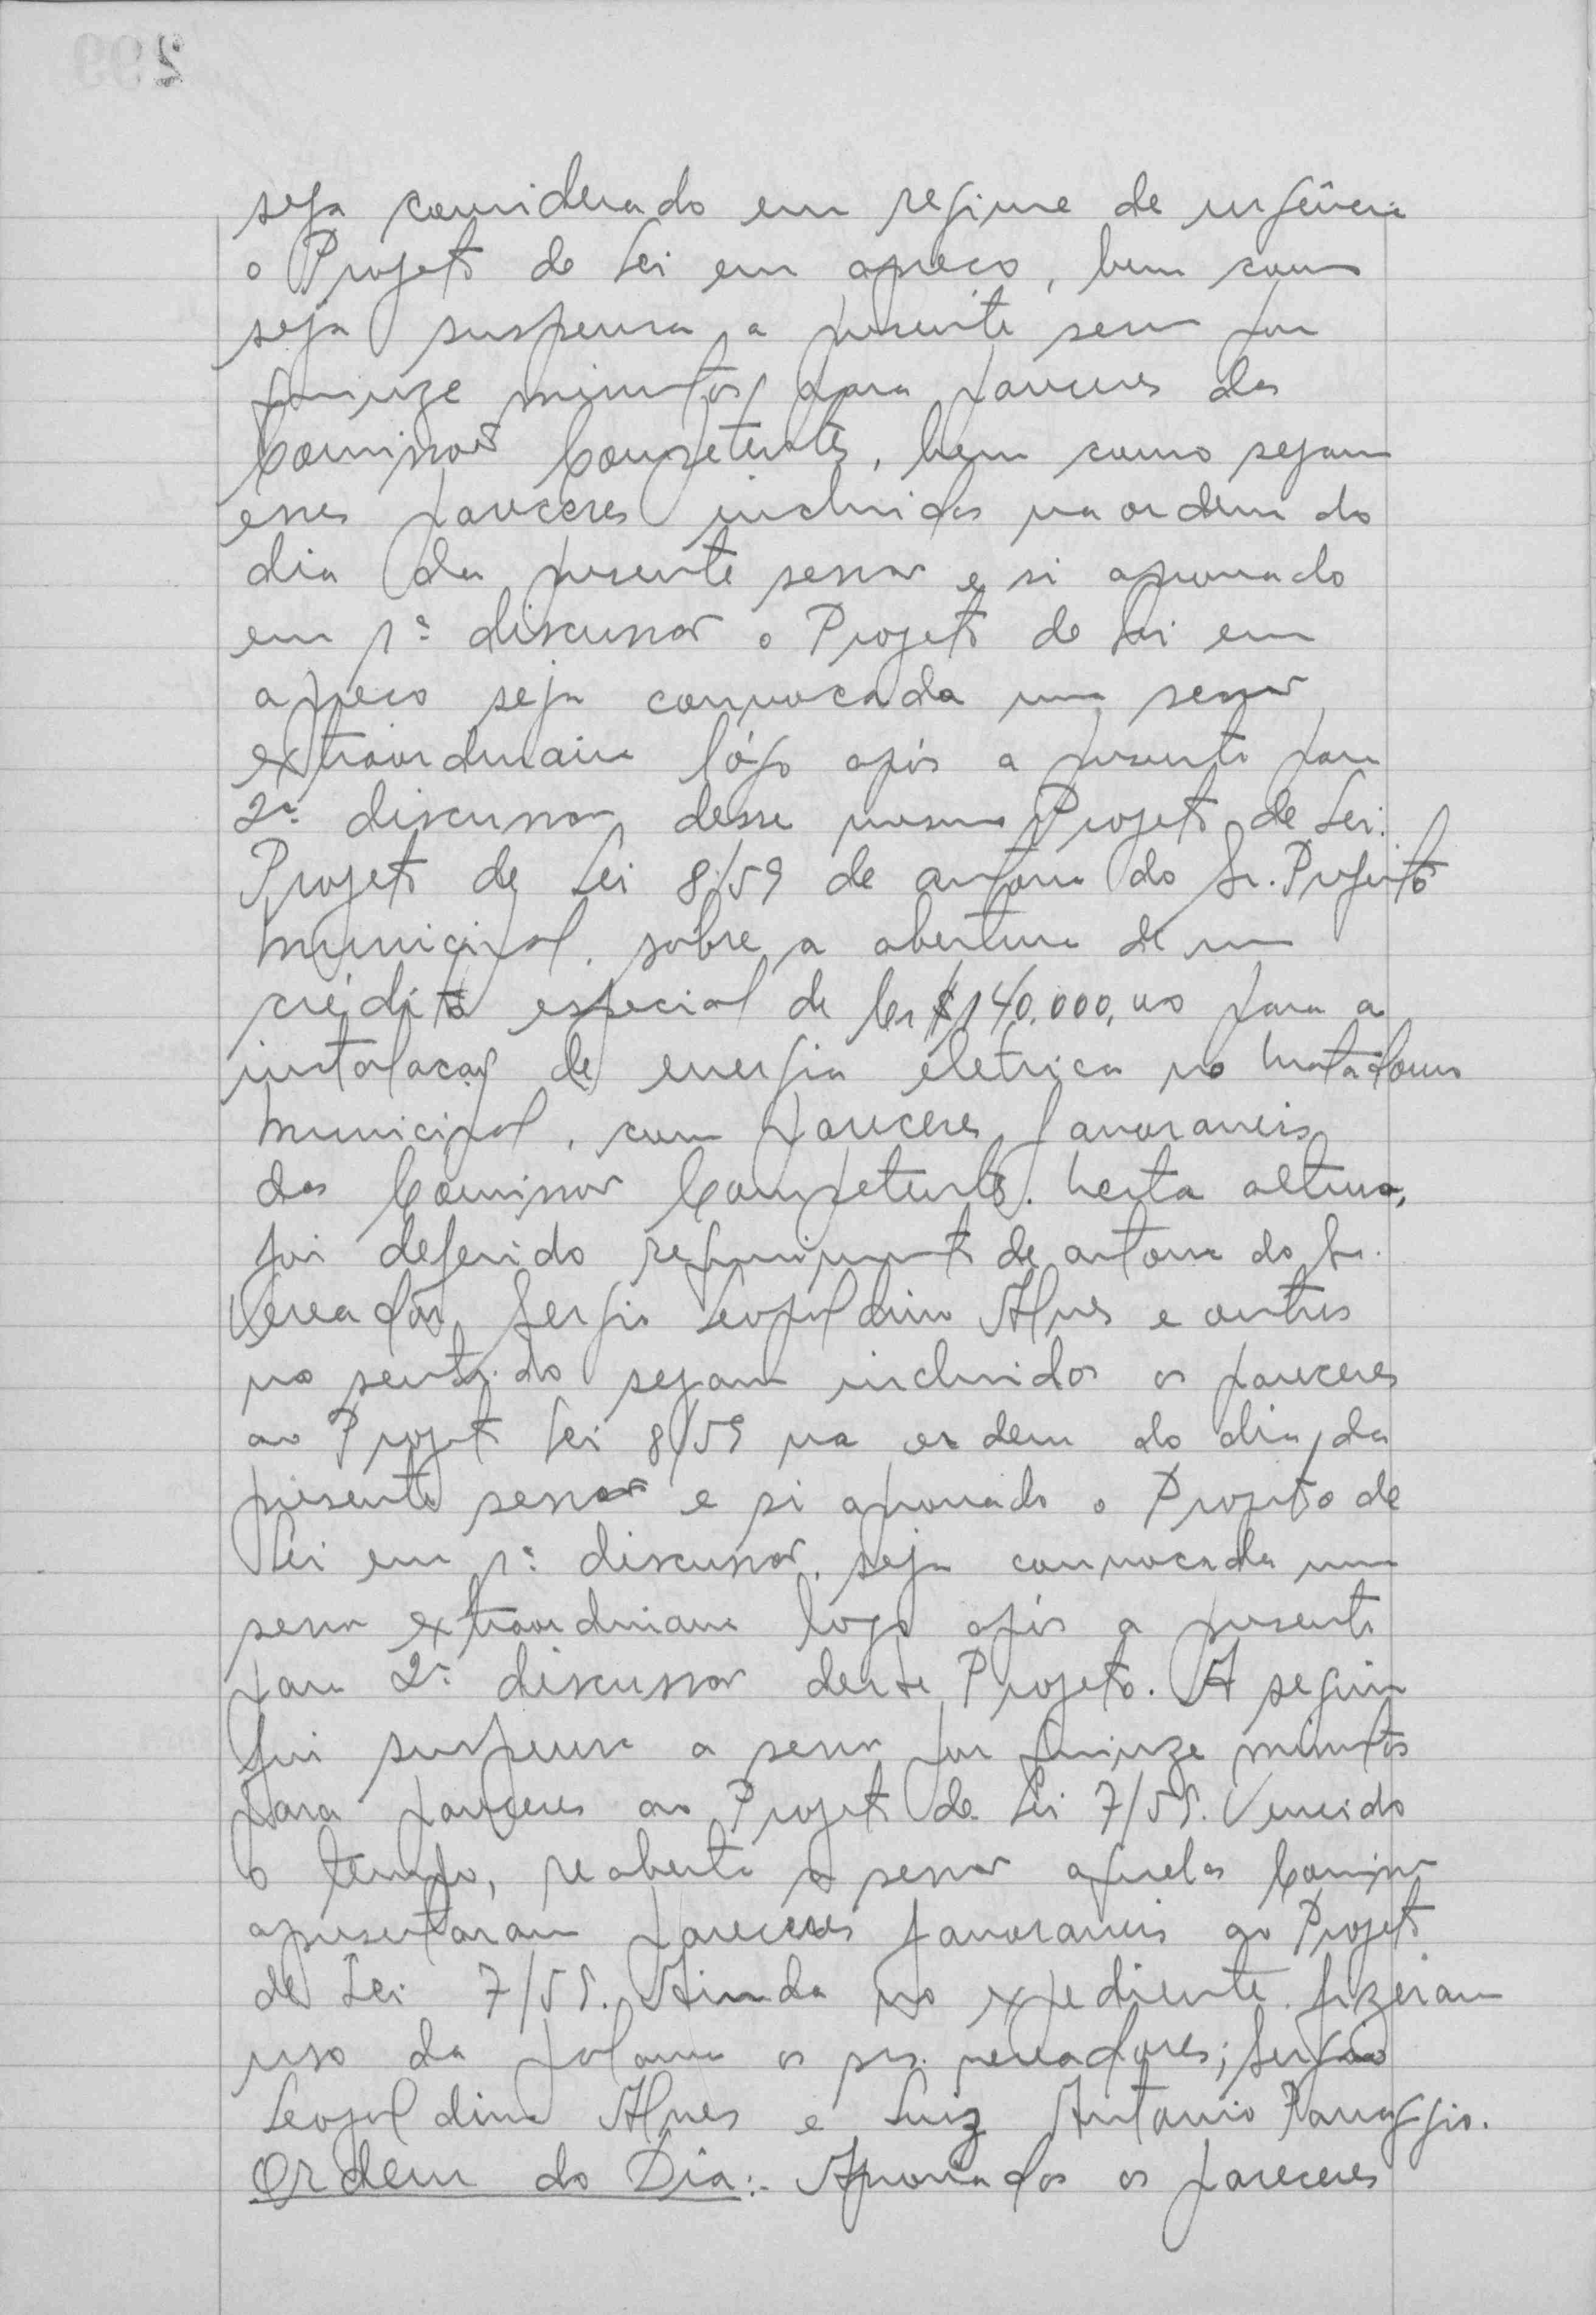 seja considerado em regime de urgência
o Projeto de Lei em apreço, bem como
seja suspensa a presente sessão por
quinze minutos para pareceres das
Comissões Competentes, bem como sejam
esses pareceres incluidos na ordem do
dia da presente sessão e si aprovado
em 1ª discussão o Projeto de Lei em
apreço seja convocada uma sessão
extraordinaria lógo após a presente para
2ª discussão desse mesmo Projeto de Lei.
Projeto de Lei 8/59 de autoria do Sr. Prefeito
Municipal, sobre a abertura de um
crédito especial de Cr$ 140.000,00 para a
instalação de energia elétrica no Matadouro
Municipal, com pareceres favoraveis
das Comissões Competentes. Nesta altura,
foi deferido requerimento de autoria do Sr.
Vereador Sergio Leopoldino Alves e outros
no sentido sejam incluidos os pareceres
ao Projeto Lei 8/59 na ordem do dia da
presente sessão e si aprovado o Projeto de
Lei em 1ª discussão, seja convocada uma
sessão extraordinaria logo após a presente
para 2ª discussão deste Projeto. A seguir
foi suspensa a sessão por quinze minutos
para pareceres ao Projeto de Lei 7/59. Vencido
o tempo, reaberta a sessão aquelas Comissões
apresentaram pareceres favoraveis ao Projeto
de Lei 7/59. Ainda no expediente fizeram
uso da palavra os srs. vereadores; Sergio
Leopoldino Alves e Luiz Antonio
Ordem do Dia:- Aprovados os pareceres